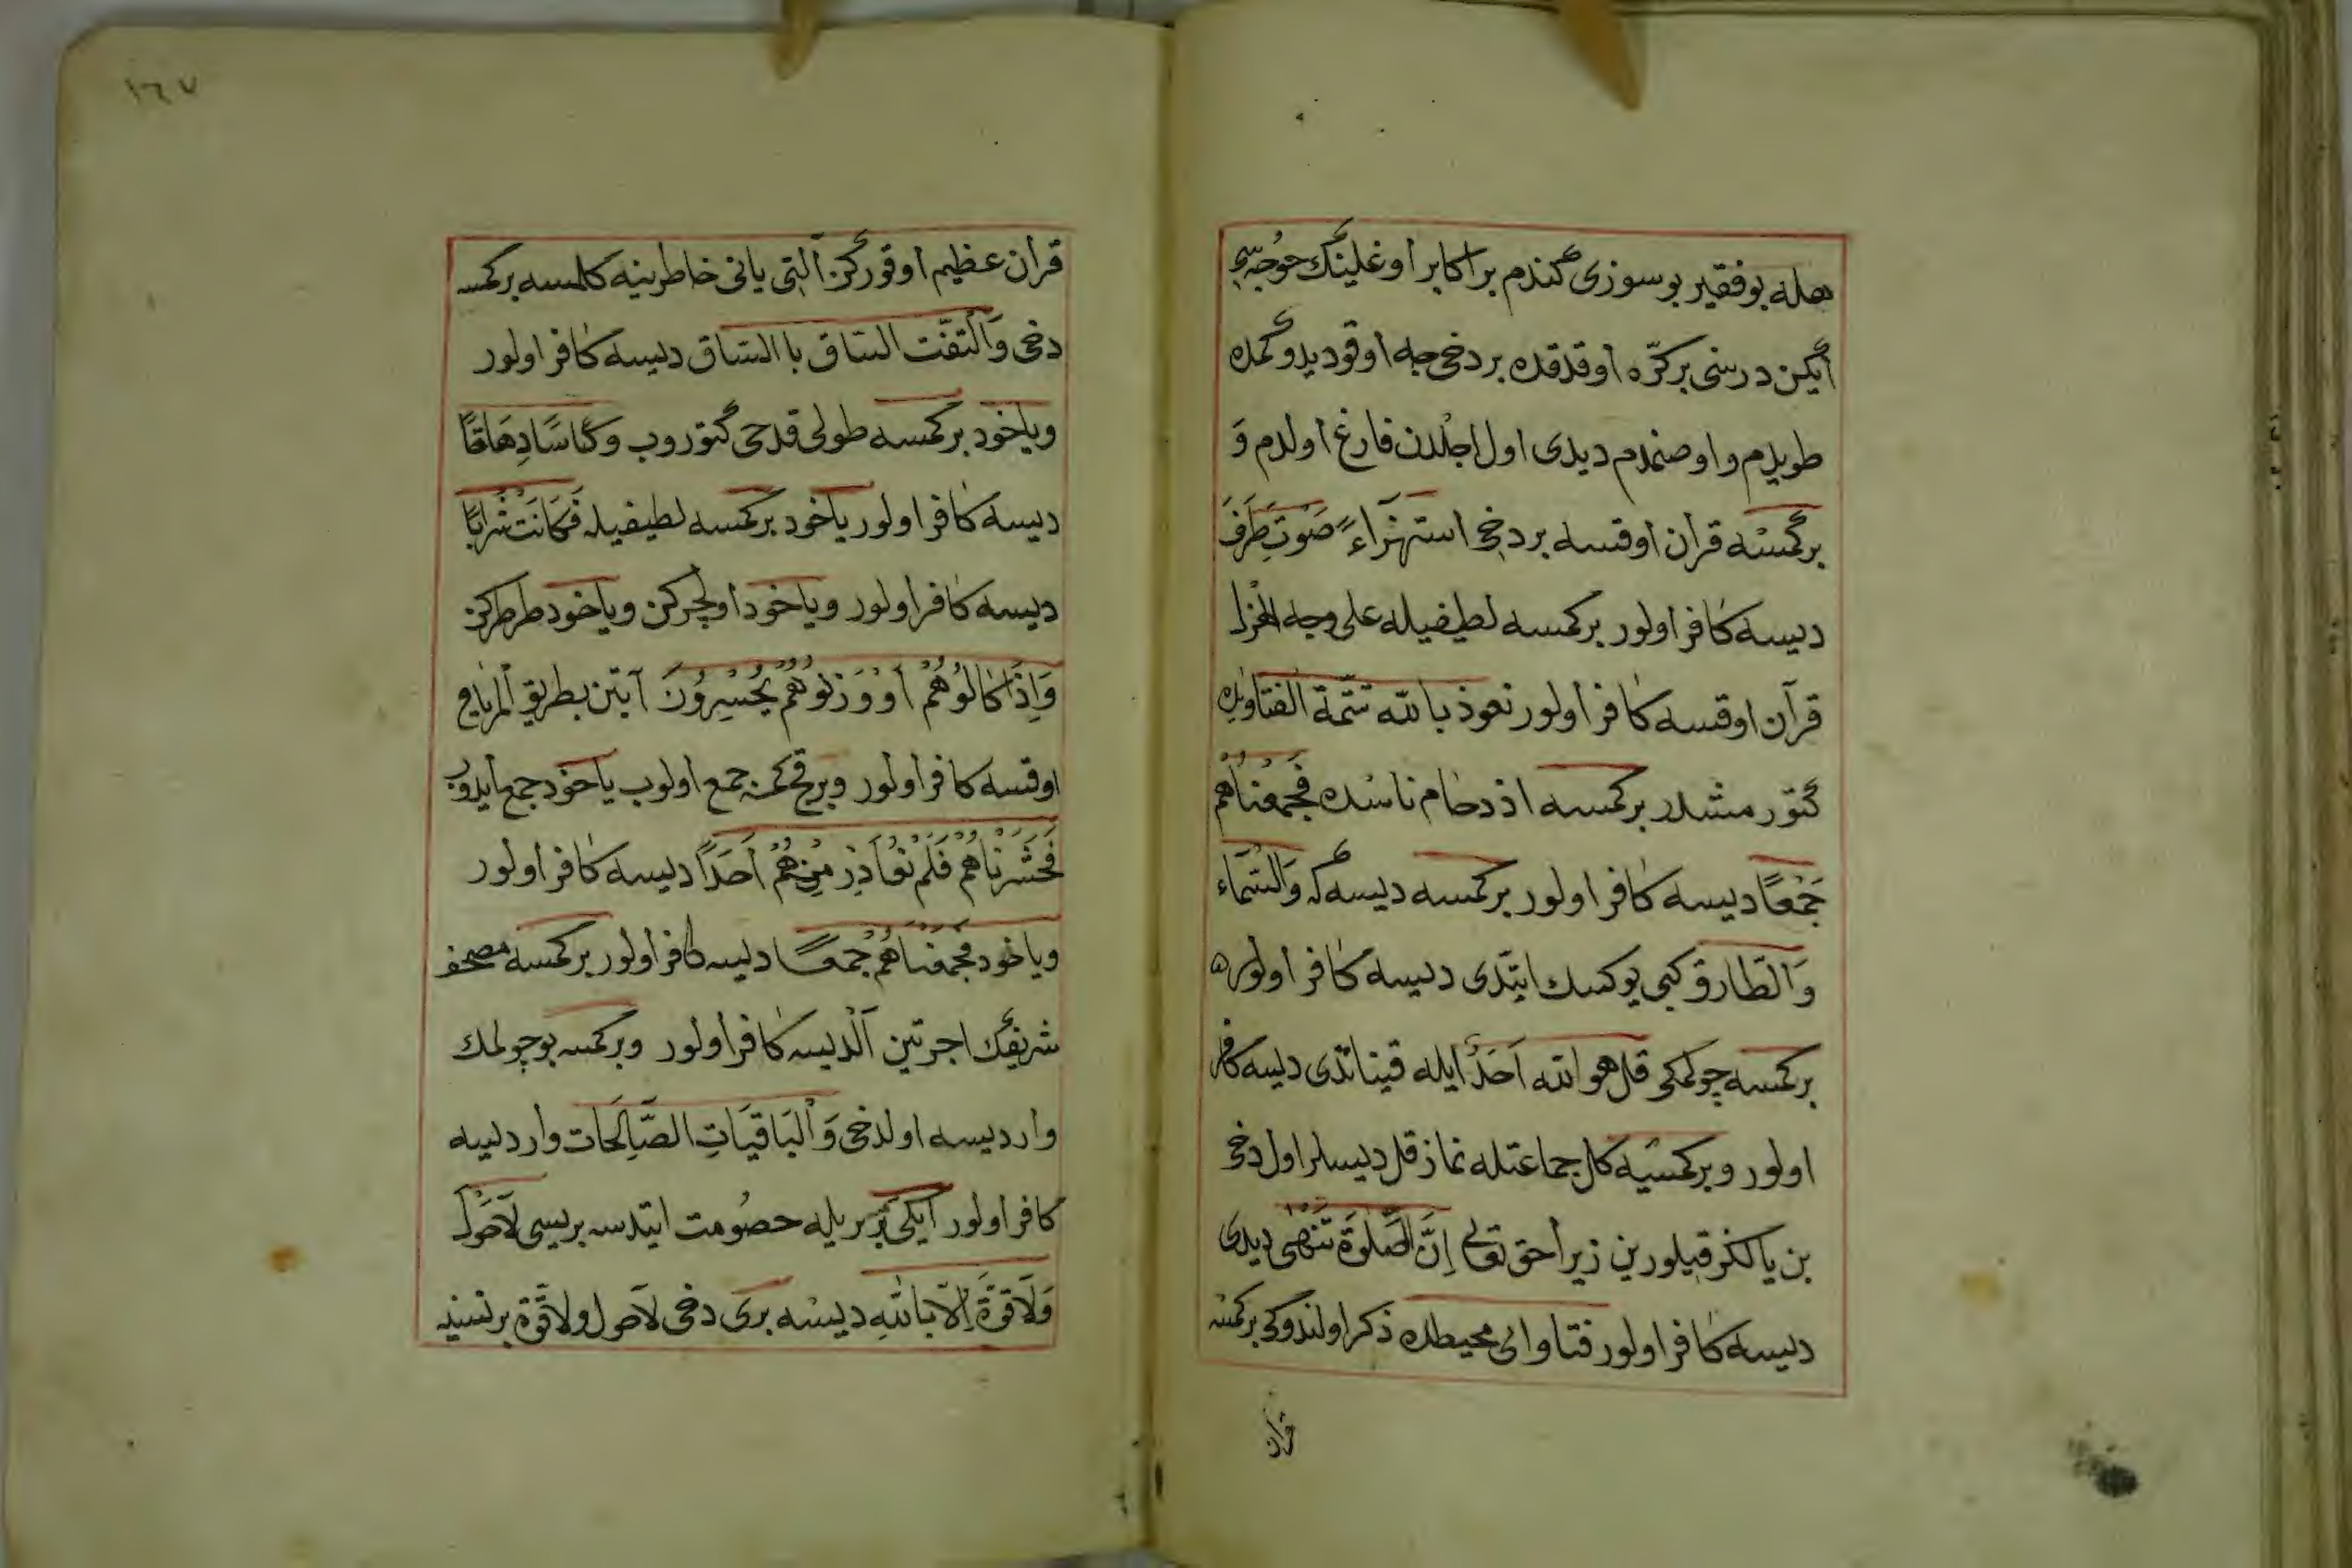 هله بو فقير بو سوزى كندم بر اكابر اوغلينك خوجه سى
ايكن درسنى بر كرّه اوقدقده بر دخى جه اوقو ديدوكمده
طويدم و اوصندم ديدى اول اجلدن فارغ اولدم وَ
بر كمسه قران اوقسه بر دخى استهزاءً صَوت طَرَفَ
ديسه كافر اولور بر كمسه لطيفيله على وجه الهزل
قرآن اوقسه كافر اولور نعوذ بالله تتمّة الفتاويده
كتورمشدر بر كمسه اذدحام ناسده فجمعناهم
جَمْعًا ديسه كافر اولور بر كمسه ديسه كه وَالسَّمَاء
وَالطّارق كبى يوكسك ايتدى ديسه كافر اولور ه
بر كمسه چولمكى قل هو الله اَحَدٌ ايله قيناتدى ديسه كافر
اولور و بر كمسيه كل جماعتله نماز قل ديسلر اول دخى
بن يالكز قيلورين زيرا حق تعالى اِنَّ الصَّلوةَ تَنْهٰى ديدى
ديسه كافر اولور فتاواى محيطده ذكر اولندوكى بر كمسه
قران
١٦٧
قران عظيم اوقوركن التى يانى خاطرينه كلسه بر كمسه
دخى وَالْتَفّت الساق باالساق ديسه كافر اولور
وياخود بر كمسه طولى قدحى كتوروب وَكَاسًا دِهَاقًا
ديسه كافر اولور ياخود بر كمسه لطيفيله فَكَانَت سَرابًا
ديسه كافر اولور وياخود اولچركن وياخود طرطركن
وَاِذَا كَالُوهُمْ اَوْ وَزَنُوهُمْ يُخْسِرُونَ آيتن بطريق المزاح
اوقسه كافر اولور و بر قچ كمسنه جمع اولوب ياخود جمع ايدوب
فَحَشَرْنَاهُمْ فَلَمْ نُغَاذِر مِنْهُمْ اَحَدًا ديسه كافر اولور
وياخود فجمعْنَاهُمْ جَمعًا ديسه كافر اولور بر كمسه مصحف
شريفك اجرتين آلدم ديسه كافر اولور و بر كمسه بو چولمك
وار ديسه اولدخى وَالْبَاقِيَاتِ الصَّالِحَات وار ديسه
كافر اولور ايكى بر بريله خصُومت ايتدسه بريسى لاَحَوْلَ
وَلَا قوّةَ اِلّا بالله ديسه برى دخى لاحول ولا قوّة بر نسنيه